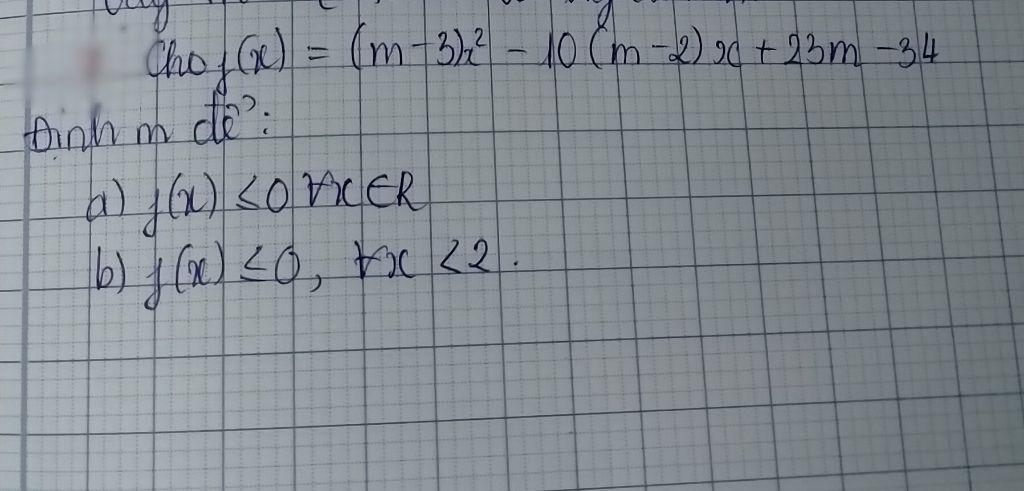 Cho f(x) = (m-3)x² - 10(m-2)x + 23m - 34
Định m để:
a) f(x) ≤ 0 ∀x ∈ R
b) f(x) ≤ 0, ∀x < 2.